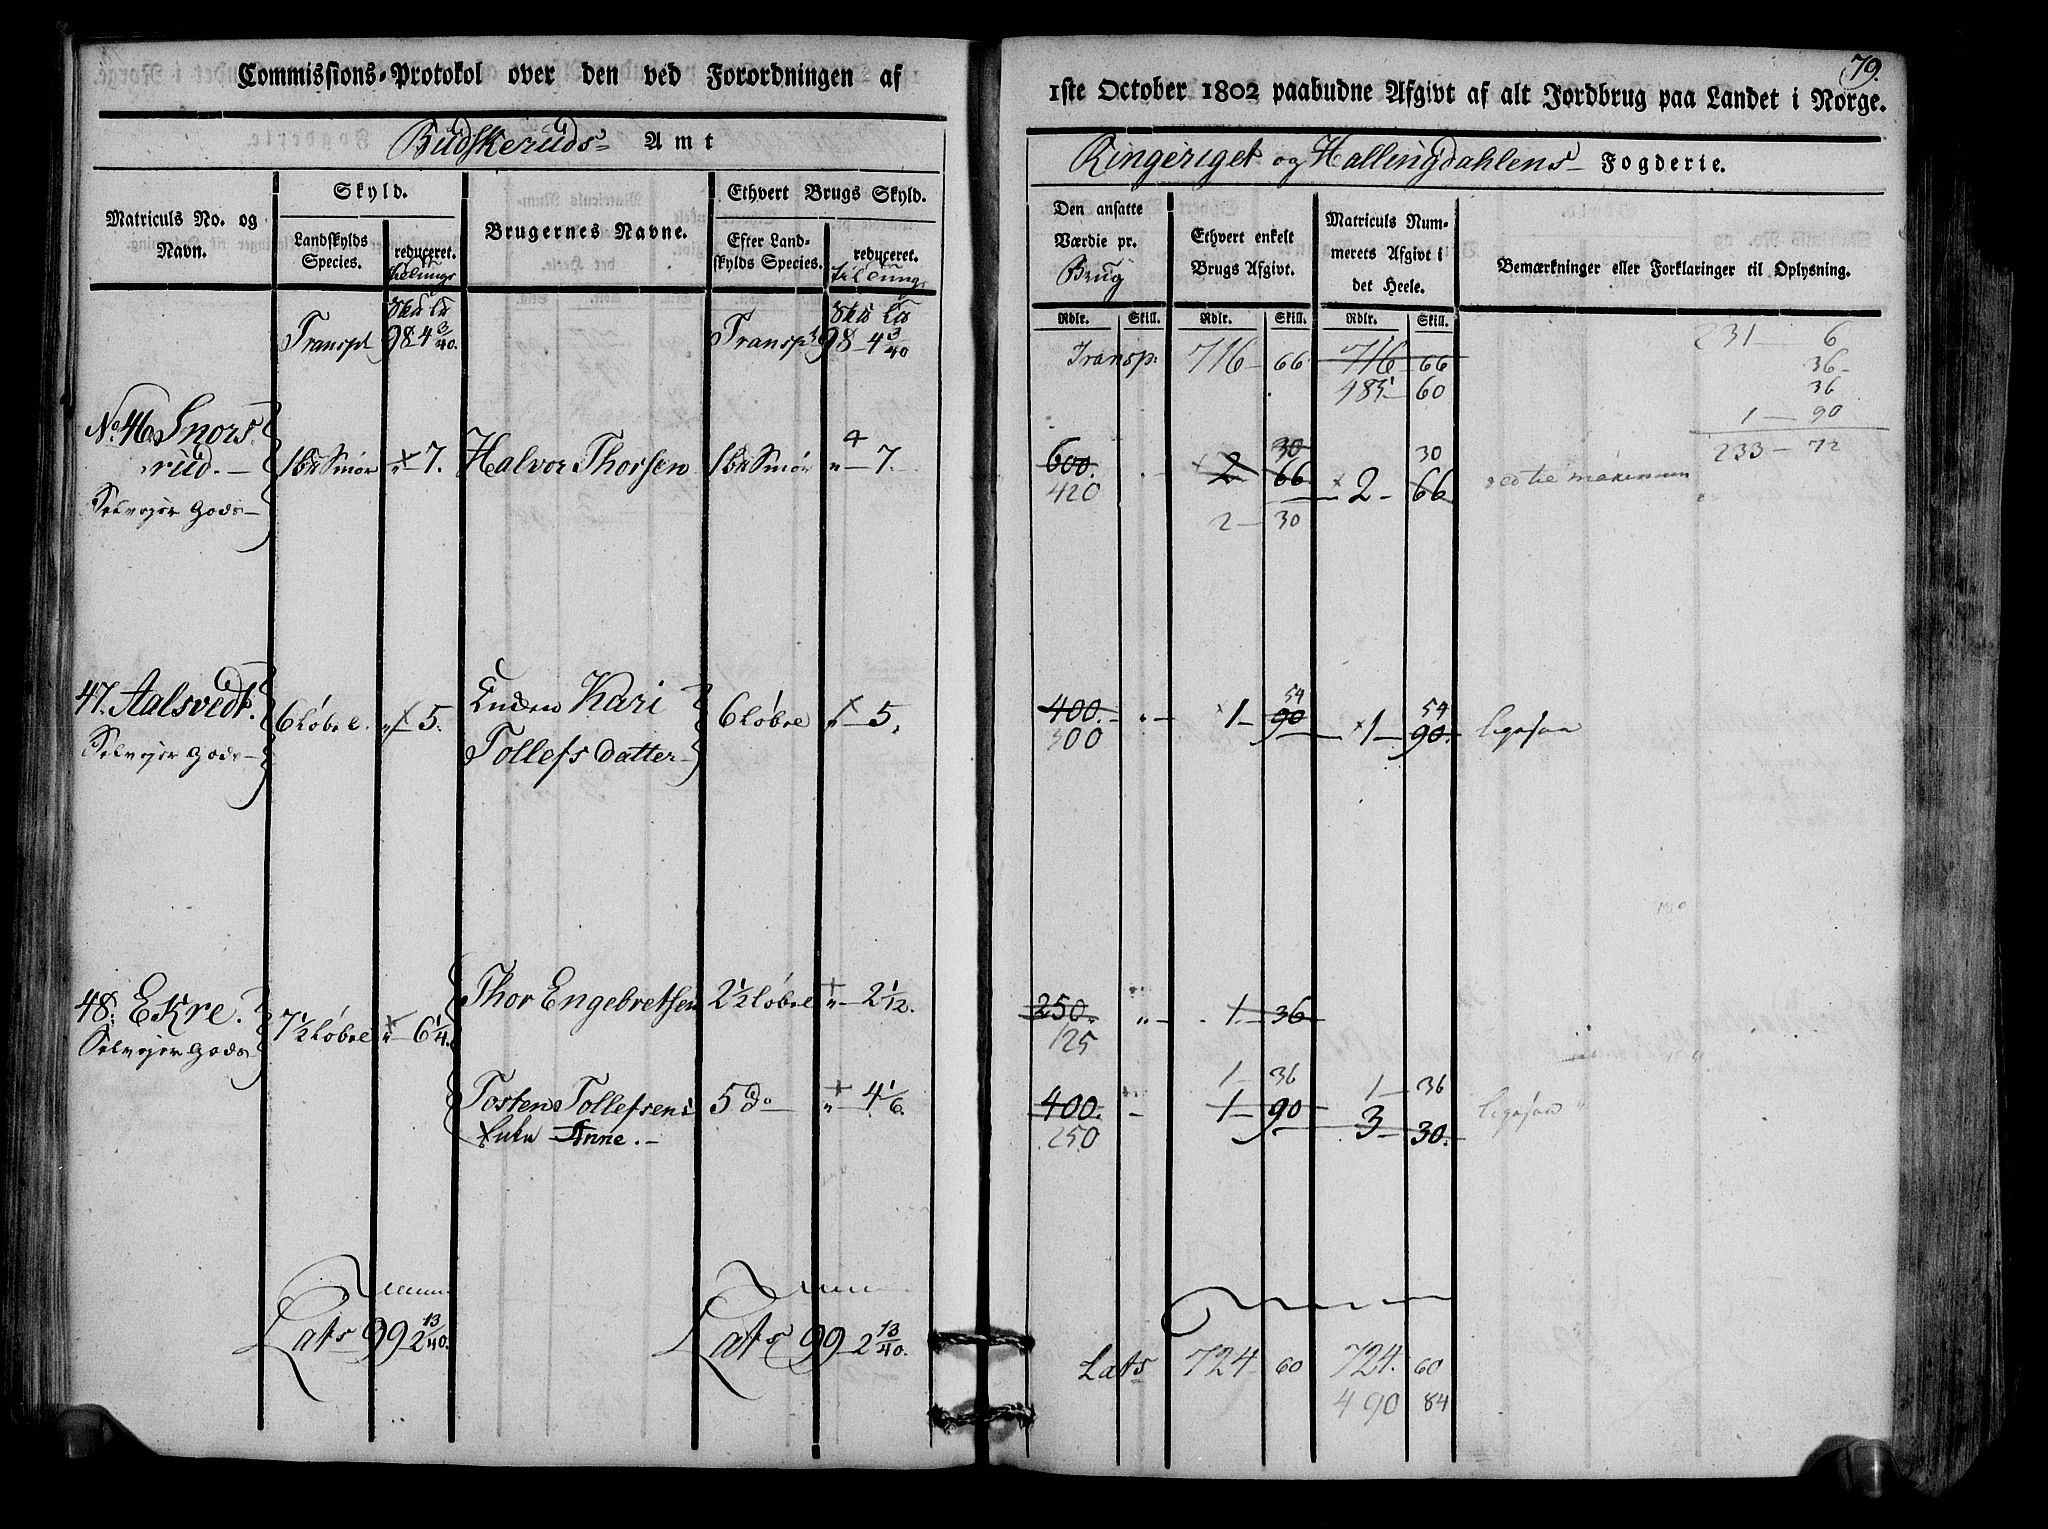 Commissions-Protokol over den ved Forordningen af
Budskeruds Amt
Matriculs No. og Navn.
Skyld.
Landskylds Species.
reduceret.
Brugernes Navne.
Ethvert Brugs Skyld.
Efter Landskylds Species.
reduceret.
Transpt 98 4 3/40. Transpt 98 - 4 3/40
No. 46. Snors
rud. - 1 Bd Smør " - 7. Halvor Thorsen 1 Bd Smør " - 7.
Selvejer Gods -
47. Aalsvedt. 6 Løbel. " - 5. Enken Kari 6 Løbel " - 5.
Selvejer Gods - Tollefs datter -
48. Ekre. 7 1/2 Løbel " - 6 1/4. Thor Engebretsen 2 1/2 Løbel " - 2 1/12.
Selvejer Gods -
Tosten Tollefsens 5 do " - 4 1/6.
Enke Anne. -
Lats 99 2 13/40. Lats 99 - 2 13/40.
79.
1ste October 1802 paabudne Afgivt af alt Jordbrug paa Landet i Norge.
Ringeriget og Hallingdahlens Fogderie.
Den ansatte Værdie pr. Brug
Ethvert enkelt Brugs Afgivt.
Matriculs Nummerets Afgivt i det Heele.
Bemærkninger eller Forklaringer til Oplysning.
Rdlr. Skill. Rdlr. Skill. Rdlr. Skill.
231 - 6
Transp. 716 - 66 716 - 66 36 -
485 - 60 36
1 - 90
30 30 233 - 72
600. - 2 66 2 - 66
420
2 - 30
54 54
400. " - 1 - 90 1 - 90. ligesaa
300
250. " - 1. - 36.
125
1 - 36 1 - 36
400. - 1 - 90 3 - 30. ligesaa
250
Lats 724 - 60 724. 60
490 84